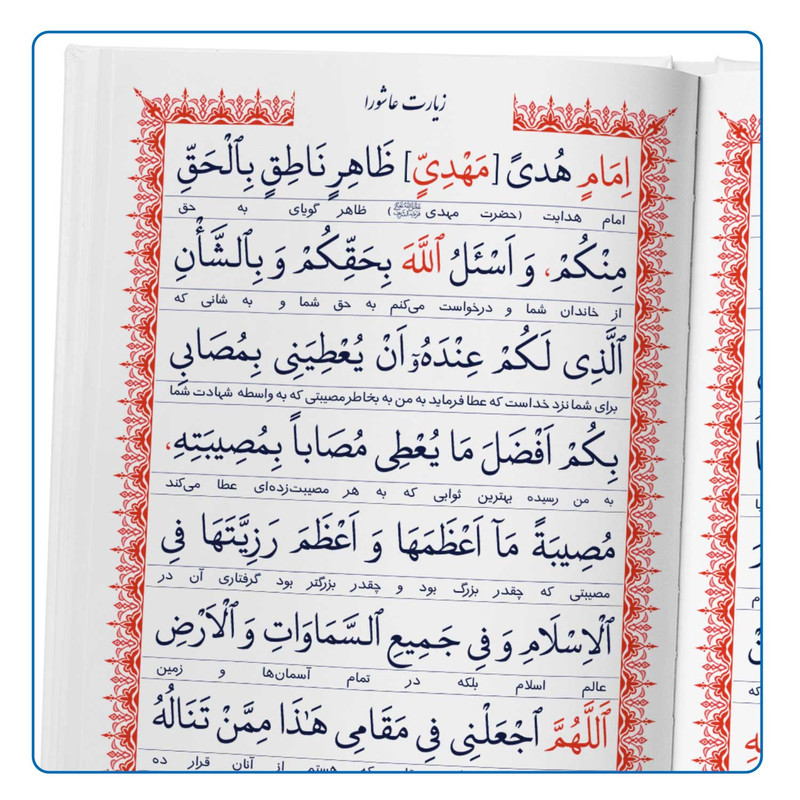 زیارت عاشورا
اِمَامٍ هُدیً [مَهْدِیٍّ] ظَاهِرٍ نَاطِقٍ بِٱلْحَقِّ
امام هدایت (حضرت مهدی) ظاهر گویای به حق
مِنْکُمْ، وَ اَسْئَلُ ٱللَّهَ بِحَقِّکُمْ وَ بِٱلشَّأْنِ
از خاندان شما و درخواست می‌کنم به حق شما و به شانی که
ٱلَّذِی لَکُمْ عِنْدَهُۥٓ اَنْ یُعْطِیَنِی بِمُصَابِی
برای شما نزد خداست که عطا فرماید به من به بخاطر مصیبتی که به واسطه شهادت شما
بِکُمْ اَفْضَلَ مَا یُعْطِی مُصَاباً بِمُصِیبَتِهِ،
به من رسیده بهترین ثوابی که به هر مصیبت‌زده‌ای عطا می‌کند
مُصِیبَةً مَآ اَعْظَمَهَا وَ اَعْظَمَ رَزِیَّتَهَا فِی
مصیبتی که چقدر بزرگ بود و چقدر بزرگتر بود گرفتاری آن در
ٱلْاِسْلَامِ وَ فِی جَمِیعِ ٱلسَّمَاوَاتِ وَ ٱلْاَرْضِ
عالم اسلام بلکه در تمام آسمان‌ها و زمین
ٱَللَّهُمَّ ٱجْعَلْنِی فِی مَقَامِی هَٰذَا مِمَّنْ تَنَالُهُ
که هستم از آنان قرار ده